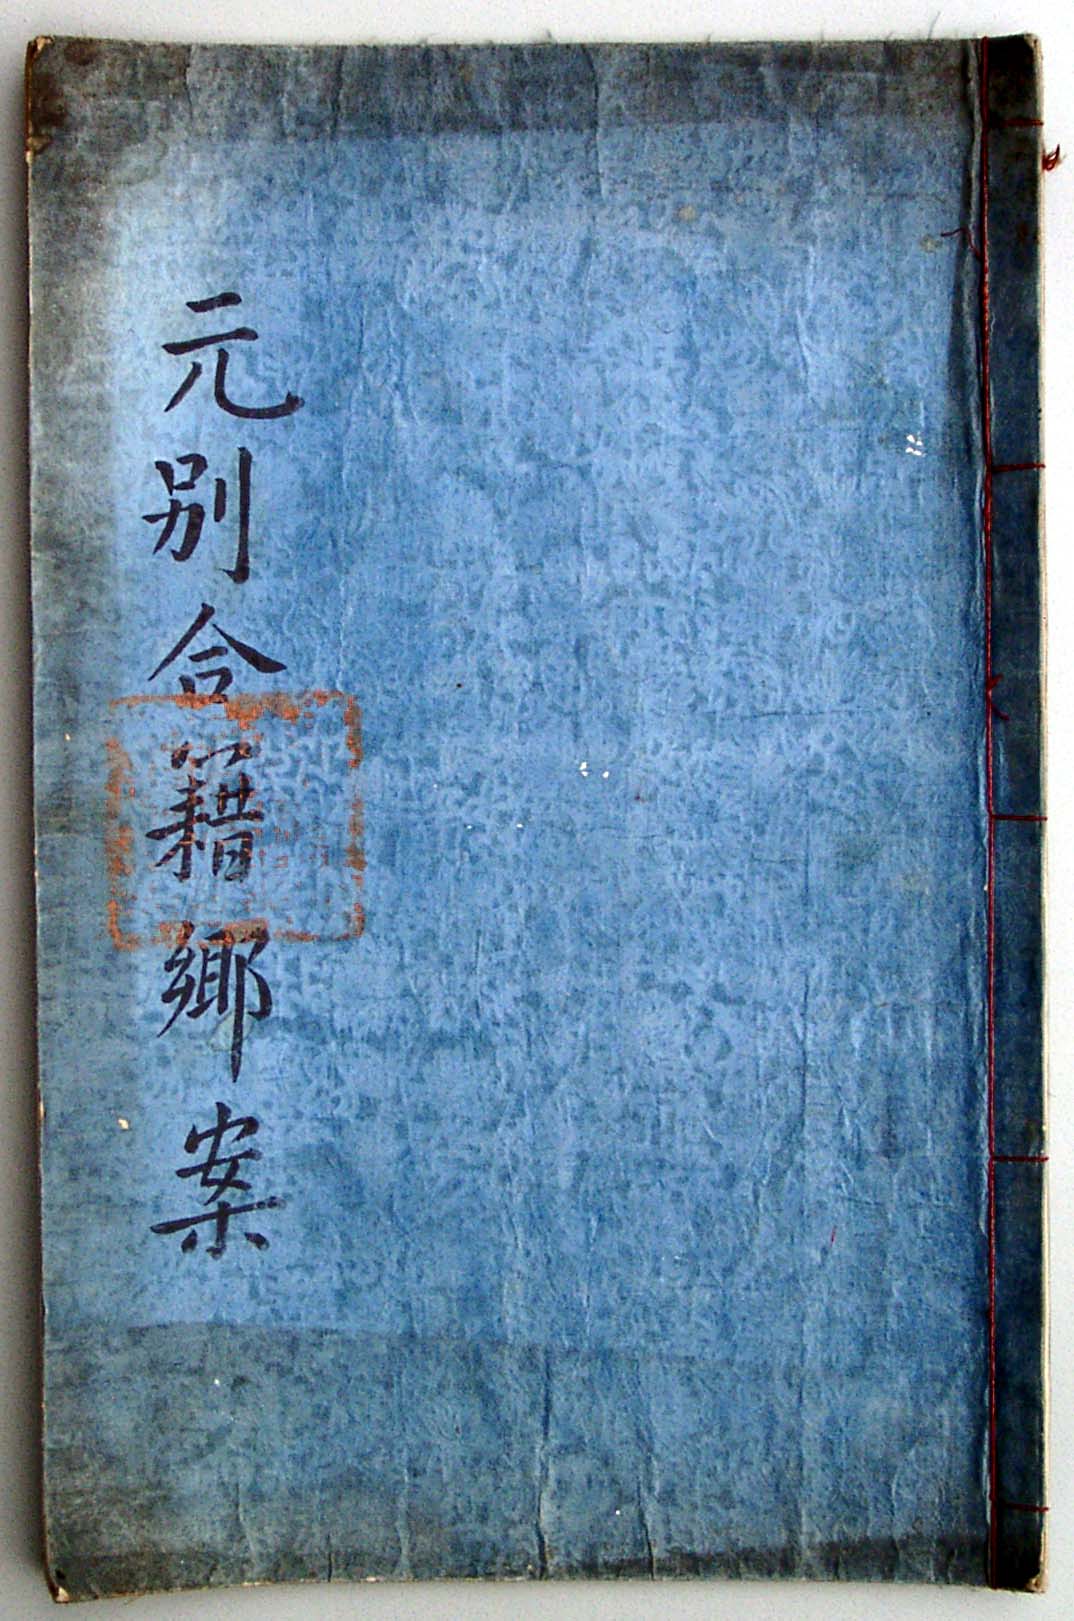 元別合籍鄉案